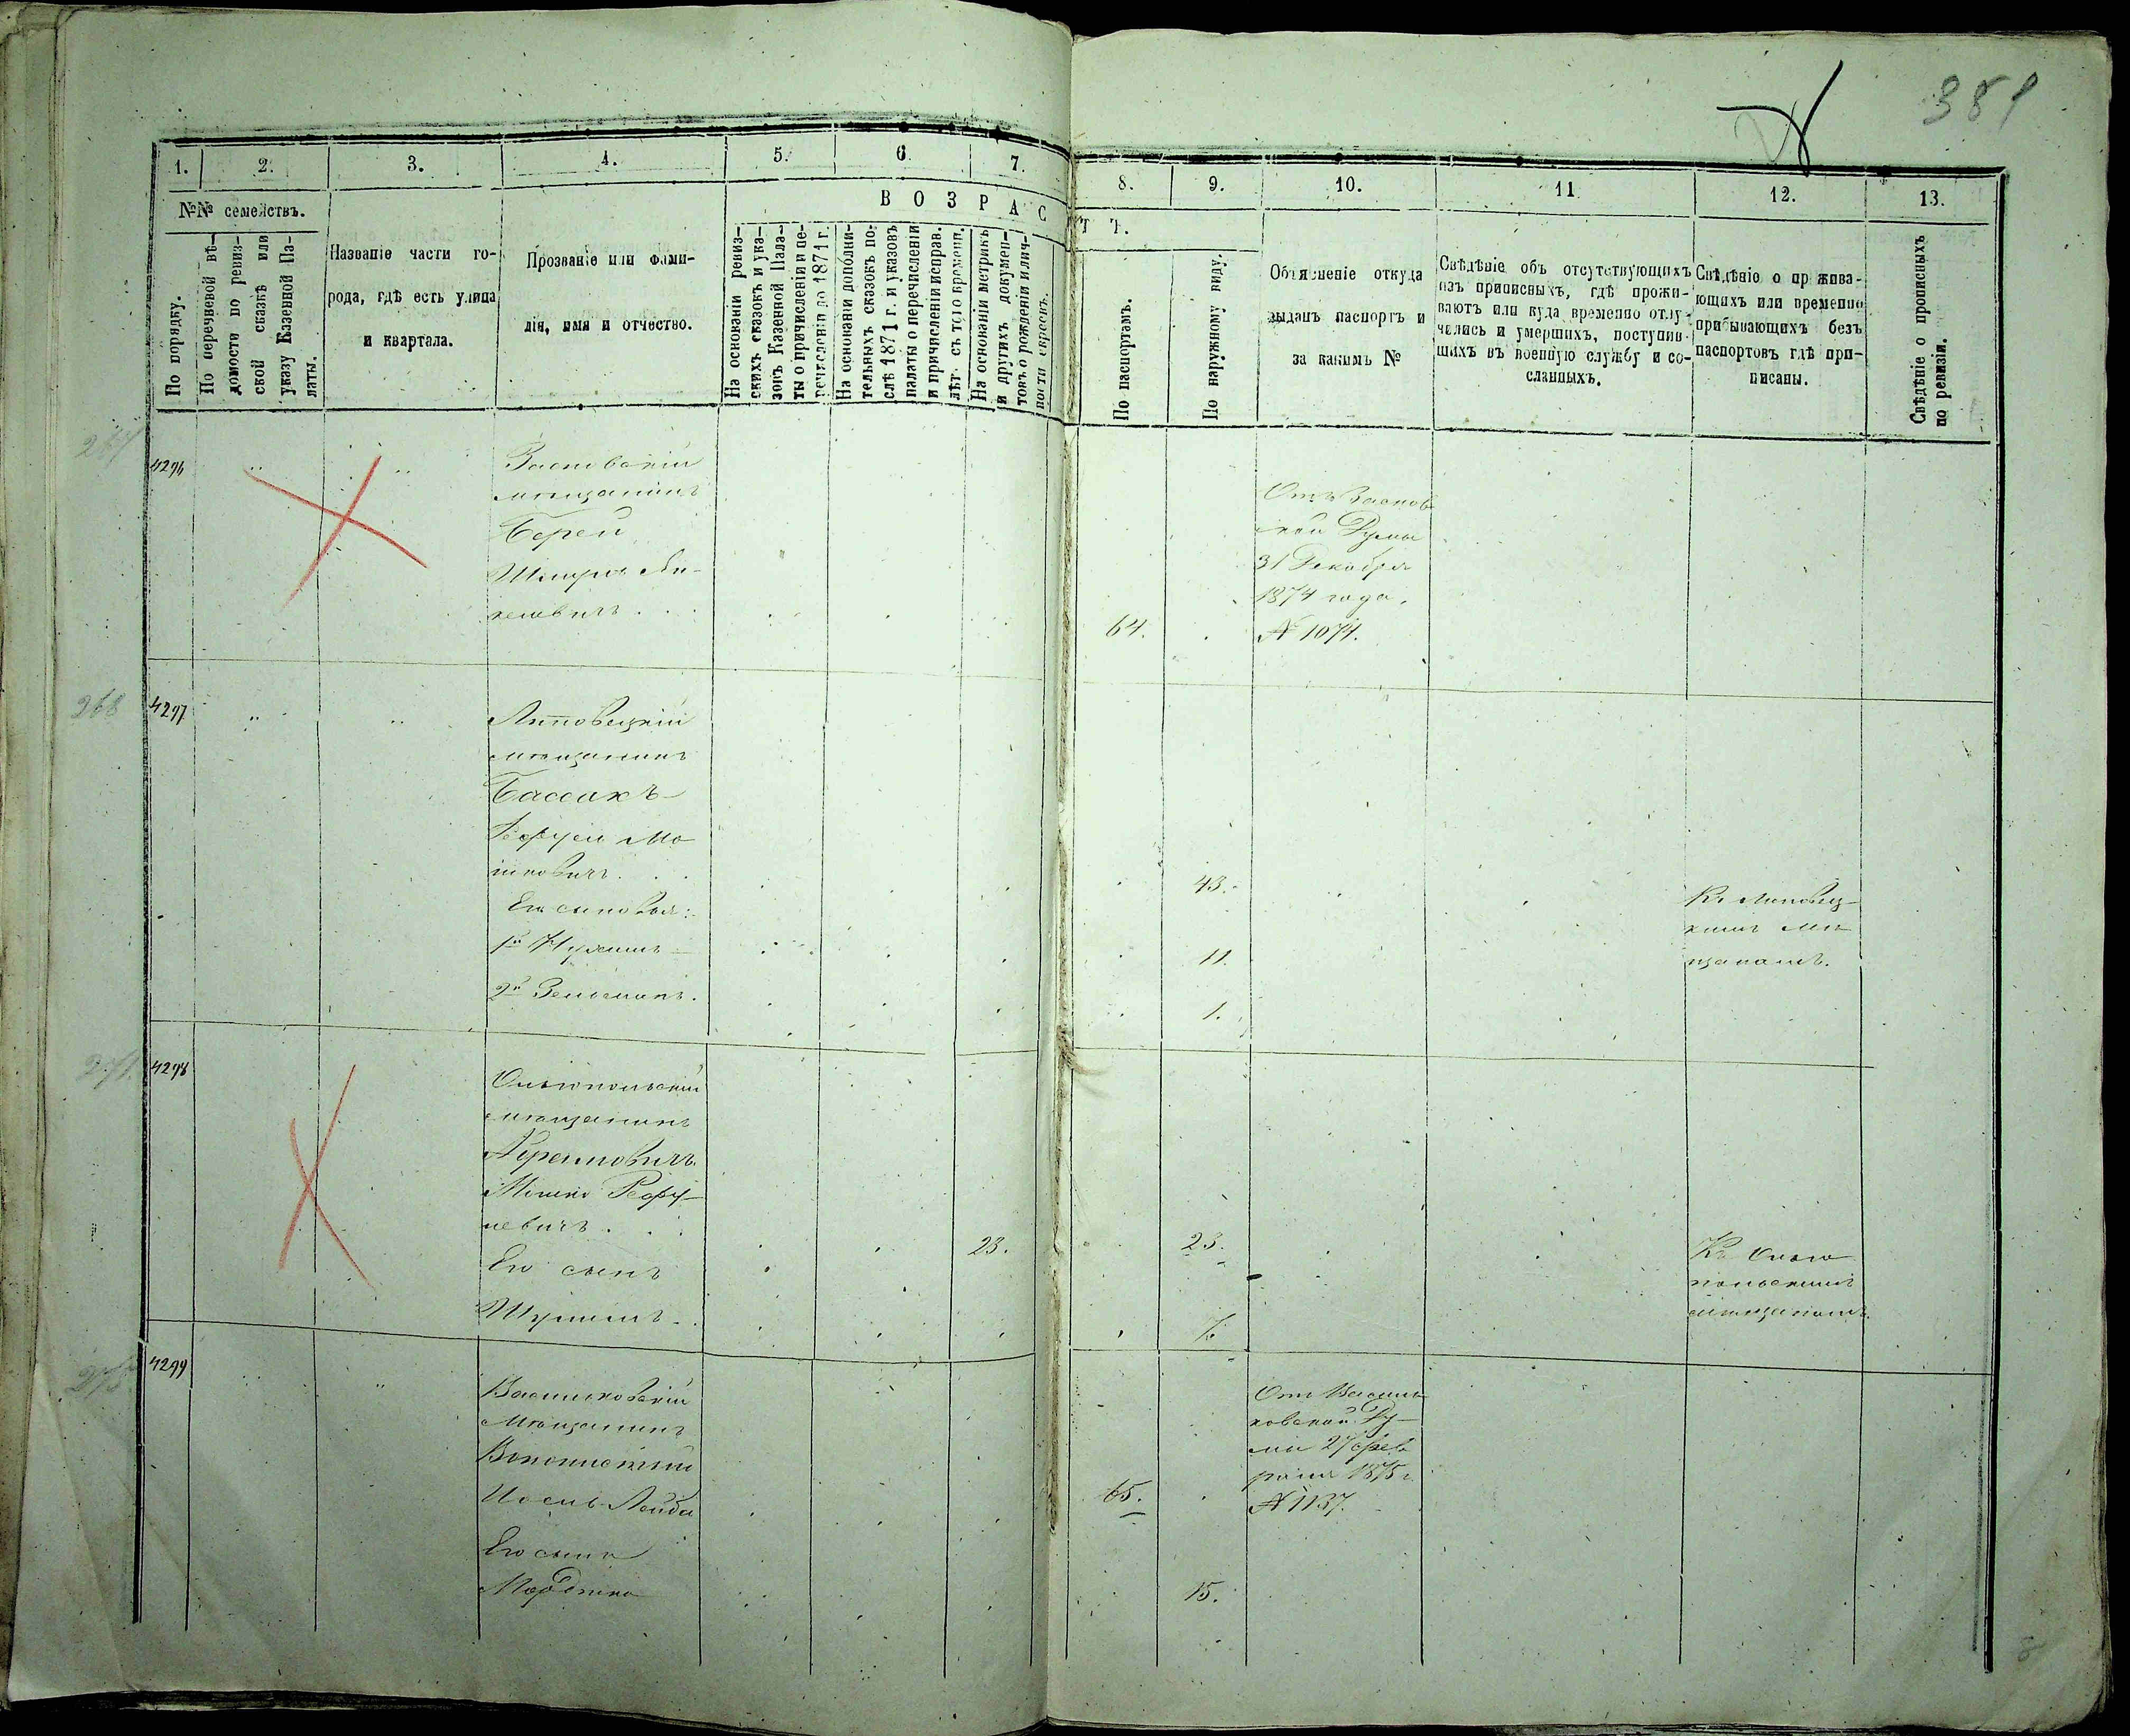 381
1.
2.
3.
4.
5.
6.
7.
8.
9.
10.
11
12.
13.
№№ семействъ.
В О З Р А С
Т Ъ.
По порядку.
По перечневой вѣ-
домости по ревиз-
ской сказкѣ или
указу Казенной Па-
латы.
Названіе части го-
рода, гдѣ есть улица
и квартала.
Прозваніе или фами-
лія, имя и отчество.
На основаніи ревиз-
скихъ сказокъ и ука-
зокъ Казенной Пала-
ты о причисленіи и пе-
речисленіи до 1871 г.
На основаніи дополни-
тельныхъ сказокъ по-
слѣ 1871 г. и указовъ
палаты о перечисленіи
и причисленіи исправ.
лѣт. съ того времени.
На основаніи метрикъ
и другихъ докумен-
товъ о рожденіи и лич-
ности евреевъ.
По паспортамъ.
По наружному виду.
Объясненіе откуда
выданъ паспортъ и
за какимъ №
Свѣдѣніе объ отсутствующихъ
изъ приписныхъ, гдѣ прожи-
ваютъ или куда временно отлу-
чались и умершихъ, поступив-
шихъ въ военную службу и со-
сланныхъ.
Свѣдѣніе о прожива-
ющихъ или временно
прибывающихъ безъ
паспортовъ гдѣ при-
писаны.
Свѣдѣніе о прописныхъ
по ревизіи.
4296
мѣщанинъ
64.
31 Декабря
1874 года.
№ 1074.
268
4297
Липовецкій
мѣщанинъ
Бассакъ
шковичъ
43.
Его сыновья:
1й
11.
2й Зельманъ.
1.
Къ Липовец-
кимъ мѣ
щанамъ.
4298
Ольгопольскій
мѣщанинъ
Мошко Рефу-
левичъ
23.
23.
Его сынъ
7.
Къ Ольго
польскимъ
мѣщанамъ.
4299
Васильковскій
мѣщанинъ
Іосель Лейба
65.
Отъ Василь
ковской Ду-
мы 27 Фев
раля 1875 г.
№ 1137.
Его сынъ
15.